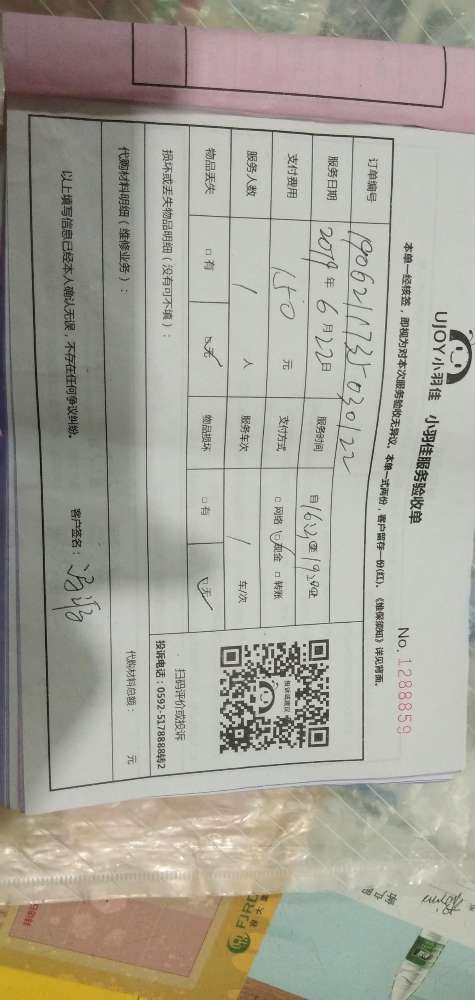 UJOY小羽佳 小羽佳服务验收单
No.1288859
本单一经核签，即视为对本次服务验收无异议。本单一式两份，客户留存一份(红)。《维保须知》详见背面。
订单编号 1906211735030122
服务日期 2019年6月22日 服务时间 自16:00至19:00止
支付费用 150元 支付方式 □网络 ☑现金 □转账
服务人数 1 人 服务车次 1 车/次
物品丢失 □有 ☑无 物品损坏 □有 ☑无
投诉或建议
扫码评价或投诉
投诉电话：0592-5178888转2
损坏或丢失物品明细（没有可不填）：
代购材料明细（维修业务）：
代购材料总额： 元
以上填写信息已经本人确认无误，不存在任何争议纠纷。
客户签名：
FJRD